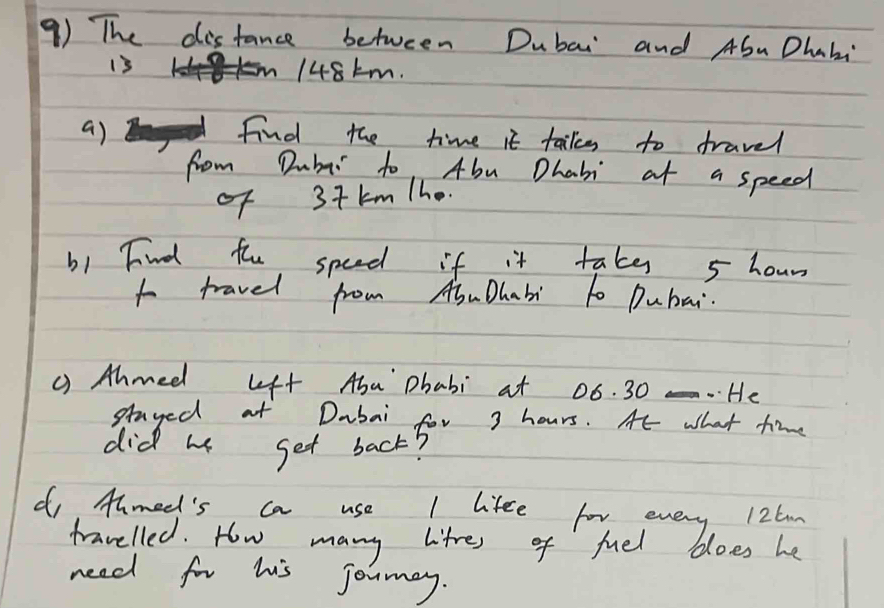 9) The distance between Dubai and Abu Dhabi
is 148 km 148 km.
a) Find the time it taikes to travel
from Dubai to Abu Dhabi at a speed
of 37 km/ho.
b) Find the speed if it takes 5 hours
to travel from Abu Dhabi to Dubai.
c) Ahmed left Abu Dhabi at 06.30 He
stayed at Dubai for 3 hours. At what time
did he get back?
d) Ahmed's ca use 1 litre for every 12km
travelled. How many litres of fuel does he
need for his journey.